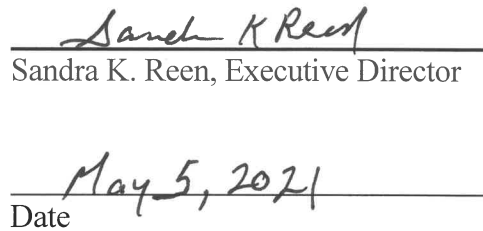 Sandra K Reen
Sandra K. Reen, Executive Director
May 5, 2021
Date